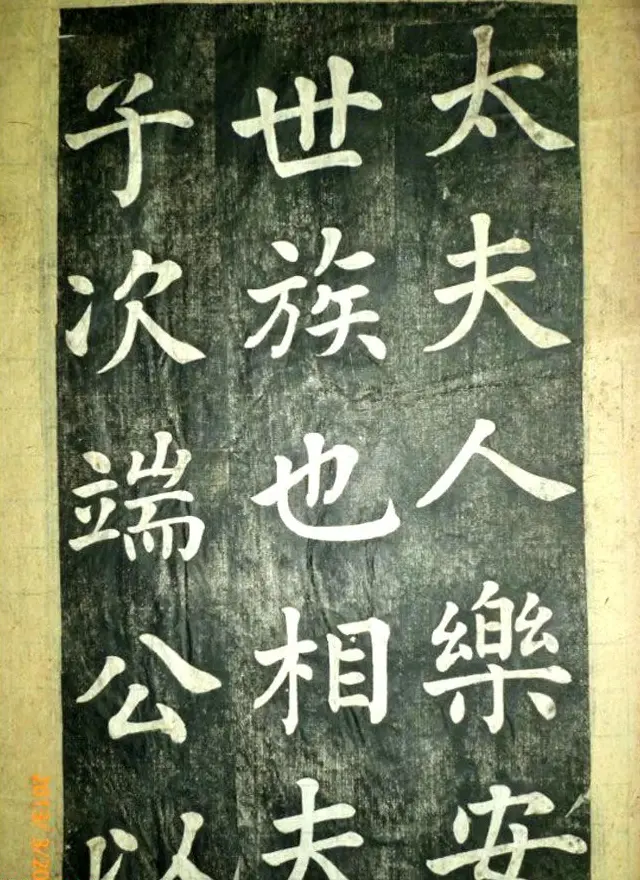 太夫人樂安
世族也相夫
子次端公以